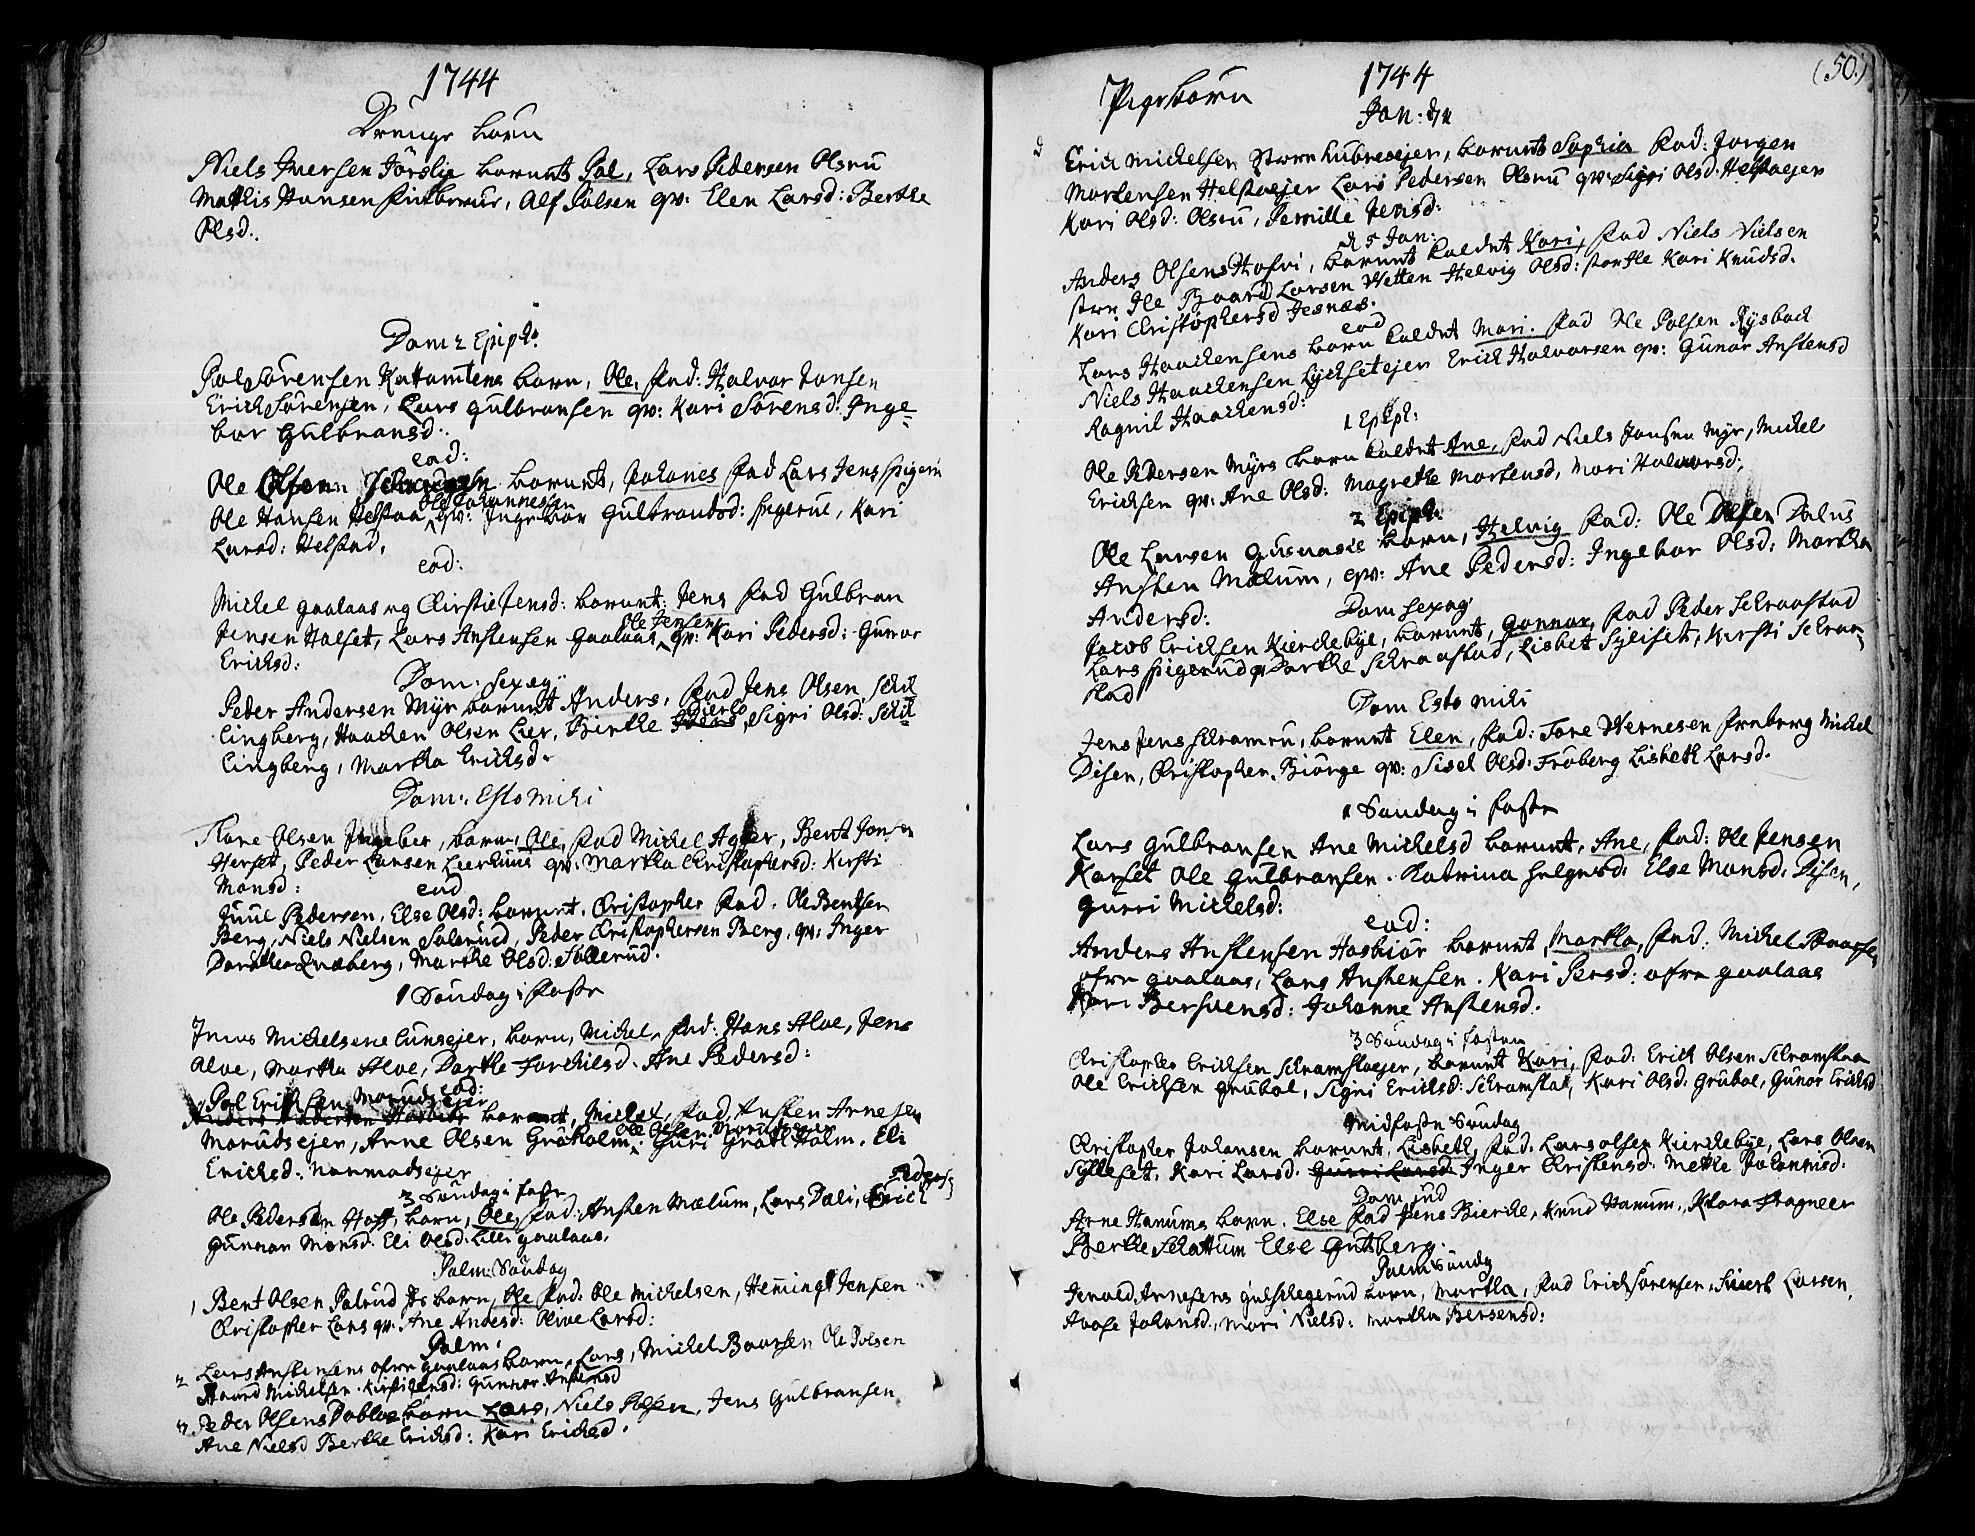 1744
Drenge børn
Niels Iversen Jörslie barnnt Pol, Lars Pedersen Olsru
Mathis Hansen, Alf Polsen qv: Elen Larsd: Berthe
Olsd:
Dom 2 Epiph:
Pol Sörensen barn, Ole, fad: Halvor Jonsen
Erick Sörensen, Lars Gulbransen qv: Kari Sörensd: Inge-
bor Gulbransd.
eod:
Ole Olsen barnnt, Johanes fad Lars Jens
Ole Johannessen
Ole Hansen Helstaa, qv: Ingebor Gulbrandsd:, Kari
Larsd: Helstad,
eod:
Michel gaalaas og Kirstie Jensd: barnnt: Jens fad Gulbran
Ole Jensen
Jensen Halset, Lars Anstensen Gaalaas, qv: Kari Pedersd: Gunor
Ericksd:
Dom: Sexag:
Peder Andersen Myr barnnt Anders, fad Jens Olsen Schil
lingberg, Haachen Olsen Lier, Birthe, Sigri Olsd: Schil
lingberg, Martha Ericksd.
Dom: Esto Mihi
Tore Olsen, barn, Ole, fad Michel, Bent Jonsen
Herset, Peder Larsen qv: Martha Christophersd: Kirsti
Monsd:
eod
Juul Pedersen, Else Olsd: barnnt. Christopher fad. Ole Bentsen
Berg, Niels Nielsen Solerud, Peder Christophersen Berg, qv: Inger
Dorthea, Marthe Olsd: Sollerud.
1 Söndag i faste
Michelsens Lunsejer, barn, Michel, fad: Hans Aloe, Jens
Aloe, Martha Aloe, Dorthe Torchilsd. Ane Pedersd:
eod:
Pol Ericksen Morudsejer
barnnt, Michel, fad, Ansten Arnesen
Ole Olsen Morudsejer
Morudsejer, Arne Olsen Gräholm, Guri Holm. Eli
Ericksd:
3 Söndag i faste
Pedersd
Ole Pedersen Hoff, barn, Ole, fad: Ansten Mælum, Lars Dæli, Erich
Gunnor Monsd. Eli Olsd: Lille gaalaas.
Palm: Söndag
1 Bent Olsen Polrud barn, Ole fad: Ole Michelsen, Heming Jensen
Christopher Lars qv: Ane Andersd: Olive Larsd:
Palm:
2 Lars Anstensens ofre gaalaas barn, Lars, Michel Baarsen Ole Polsen
Michelsen. Gunnor Anstensd
3 Peder Olsens barn Lars, Niels Polsen, Jens Gulbransen
Ane Nielsd Berthe Ericksd: Kari Ericksd.
(50.)
Pigebörn 1744
Jan: d
Erich Michelsen, barnnt Sophia fad: Jörgen
Mortensen Helstaejer Lars Pedersen Olsru qv: Sigri Olsd: Helstaejer
Kari Olsd: Olsru, Pernille Jensd:
d 5 Jan:
Anders Olsens Hofvi, barnnt kaldet Kari, fad Niels Nielsen
Ole Baard Larsen Wetten Helvig Olsd: Kari Knudsd.
Kari Christophersd Jesnæs.
eod
Lars Haachensens barn kaldet Mari. fad Ole Polsen Rysback
Niels Haachensen Lychsetejer Erich Halvorsen qv: Gunor Anstensd
Ragnil Haachensd:
1 Epiph:
Ole Pedersen Myrs barn kaldet Ane, fad Niels Jonsen Myr, Michel
Ericksen qv: Ane Olsd: Magrethe Mortensd, Mari Halvorsd.
2 Epiph:
Ole Larsen Gusuasie barn, Helvig fad: Ole Olsen Dalus
Ansten Mælum, qv: Ane Pedersd: Ingebor Olsd: Martha
Andersd:
Dom sexag
Jacob Ericksen Kierchebye, barnnt, Gonnor, fad Peder Schraastad
Lars qv Dorthe Schraastad, Lisbet Sÿlset, Kirsti Schraa-
stad
Dom Esto Mihi
Jens Jens, barnnt Elen, fad: Tore Wernesen Froberg Michel
Disen, Christopher Biörge qv: Sisel Olsd. Fröberg Lisbeth Larsd.
1 Söndag i faste
Lars Gulbransen Ane Michelsd barnnt, Ane, fad: Ole Jensen
Korset Ole Gulbransen. Katrina Helgesd. Else Monsd. Disen,
Gurri Michelsd:
eod:
Anders Anstensen Hasbiör barnnt Martha, fad: Michel Baarsen
ofre gaalaas, Lars Anstensen. Kari Persd: ofre gaalaas
Kari Bersvensd: Johanne Anstensd.
3 Söndag i fasten
Christopher Ericksen Schramstaejer, barnnt Kari, fad: Erich Olsen Schramstaa
Ole Ericksen Grubol, Sigri Ericksd: Schramstad, Kari Olsd: Grubol, Gunor Ericksd
Midfaste Söndag
Christopher Johansen barnnt, Lisbeth, fad. Lars Olsen Kierchebye, Lars Olsen
Sÿlleset. Kari Larsd. Gurri Larsd. Inger Christensd: Mette Johannisd:
Dom Jud
Arne Hanums barn. Else fad Jens Bierche, Knud Hanum., Klara
Berthe Schattum Else Gutberg.
Palm Söndg
Arnesens barn, Martha, fad Erich Sörensen, Siuert Larsen,
Aase Johansd., Mari Nielsd: Martha Bersensd: